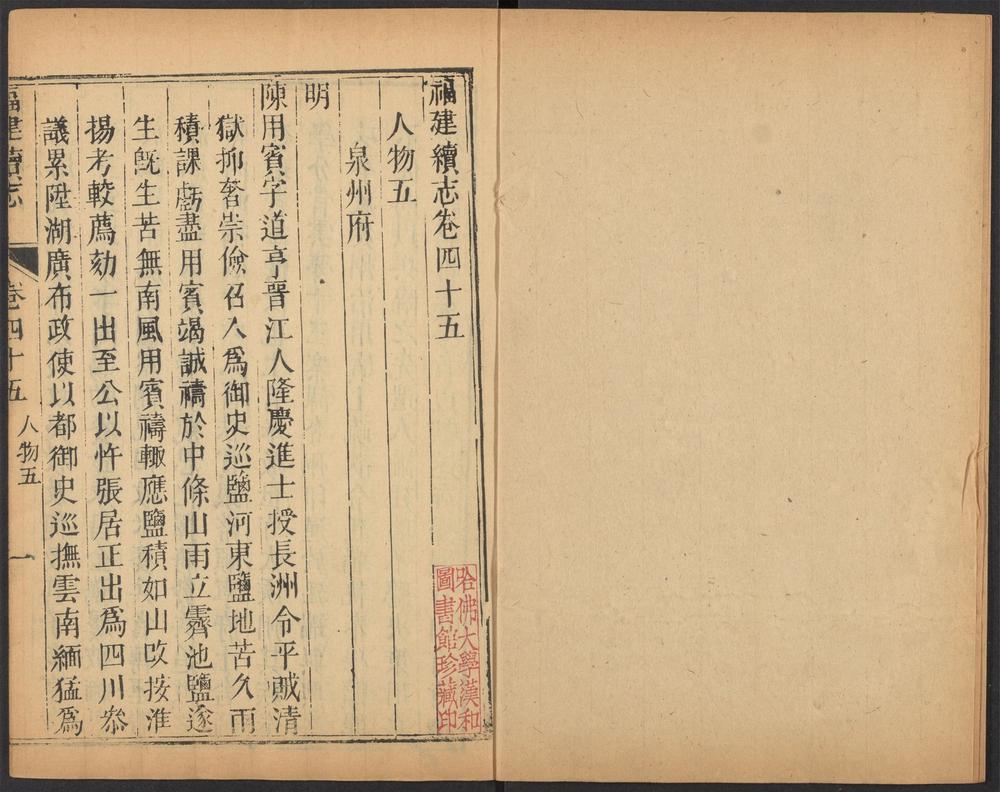 福建續志卷四十五
人物五
泉州府
明
陳用賓字道亨晉江人隆慶進士授長洲令平賦清
獄抑奢崇儉召入爲御史巡鹽河東鹽地苦久雨
積課虧盡用賓竭誠禱於中條山雨立霽池鹽遂
生旣生苦無南風用賓禱輙應鹽積如山改按淮
揚考較薦劾一出至公以忤張居正出爲四川叅
議累陞湖廣布政使以都御史巡撫雲南緬猛爲
福建續志
卷四十五
人物五
一
哈佛大學漢和
圖書館珍藏印